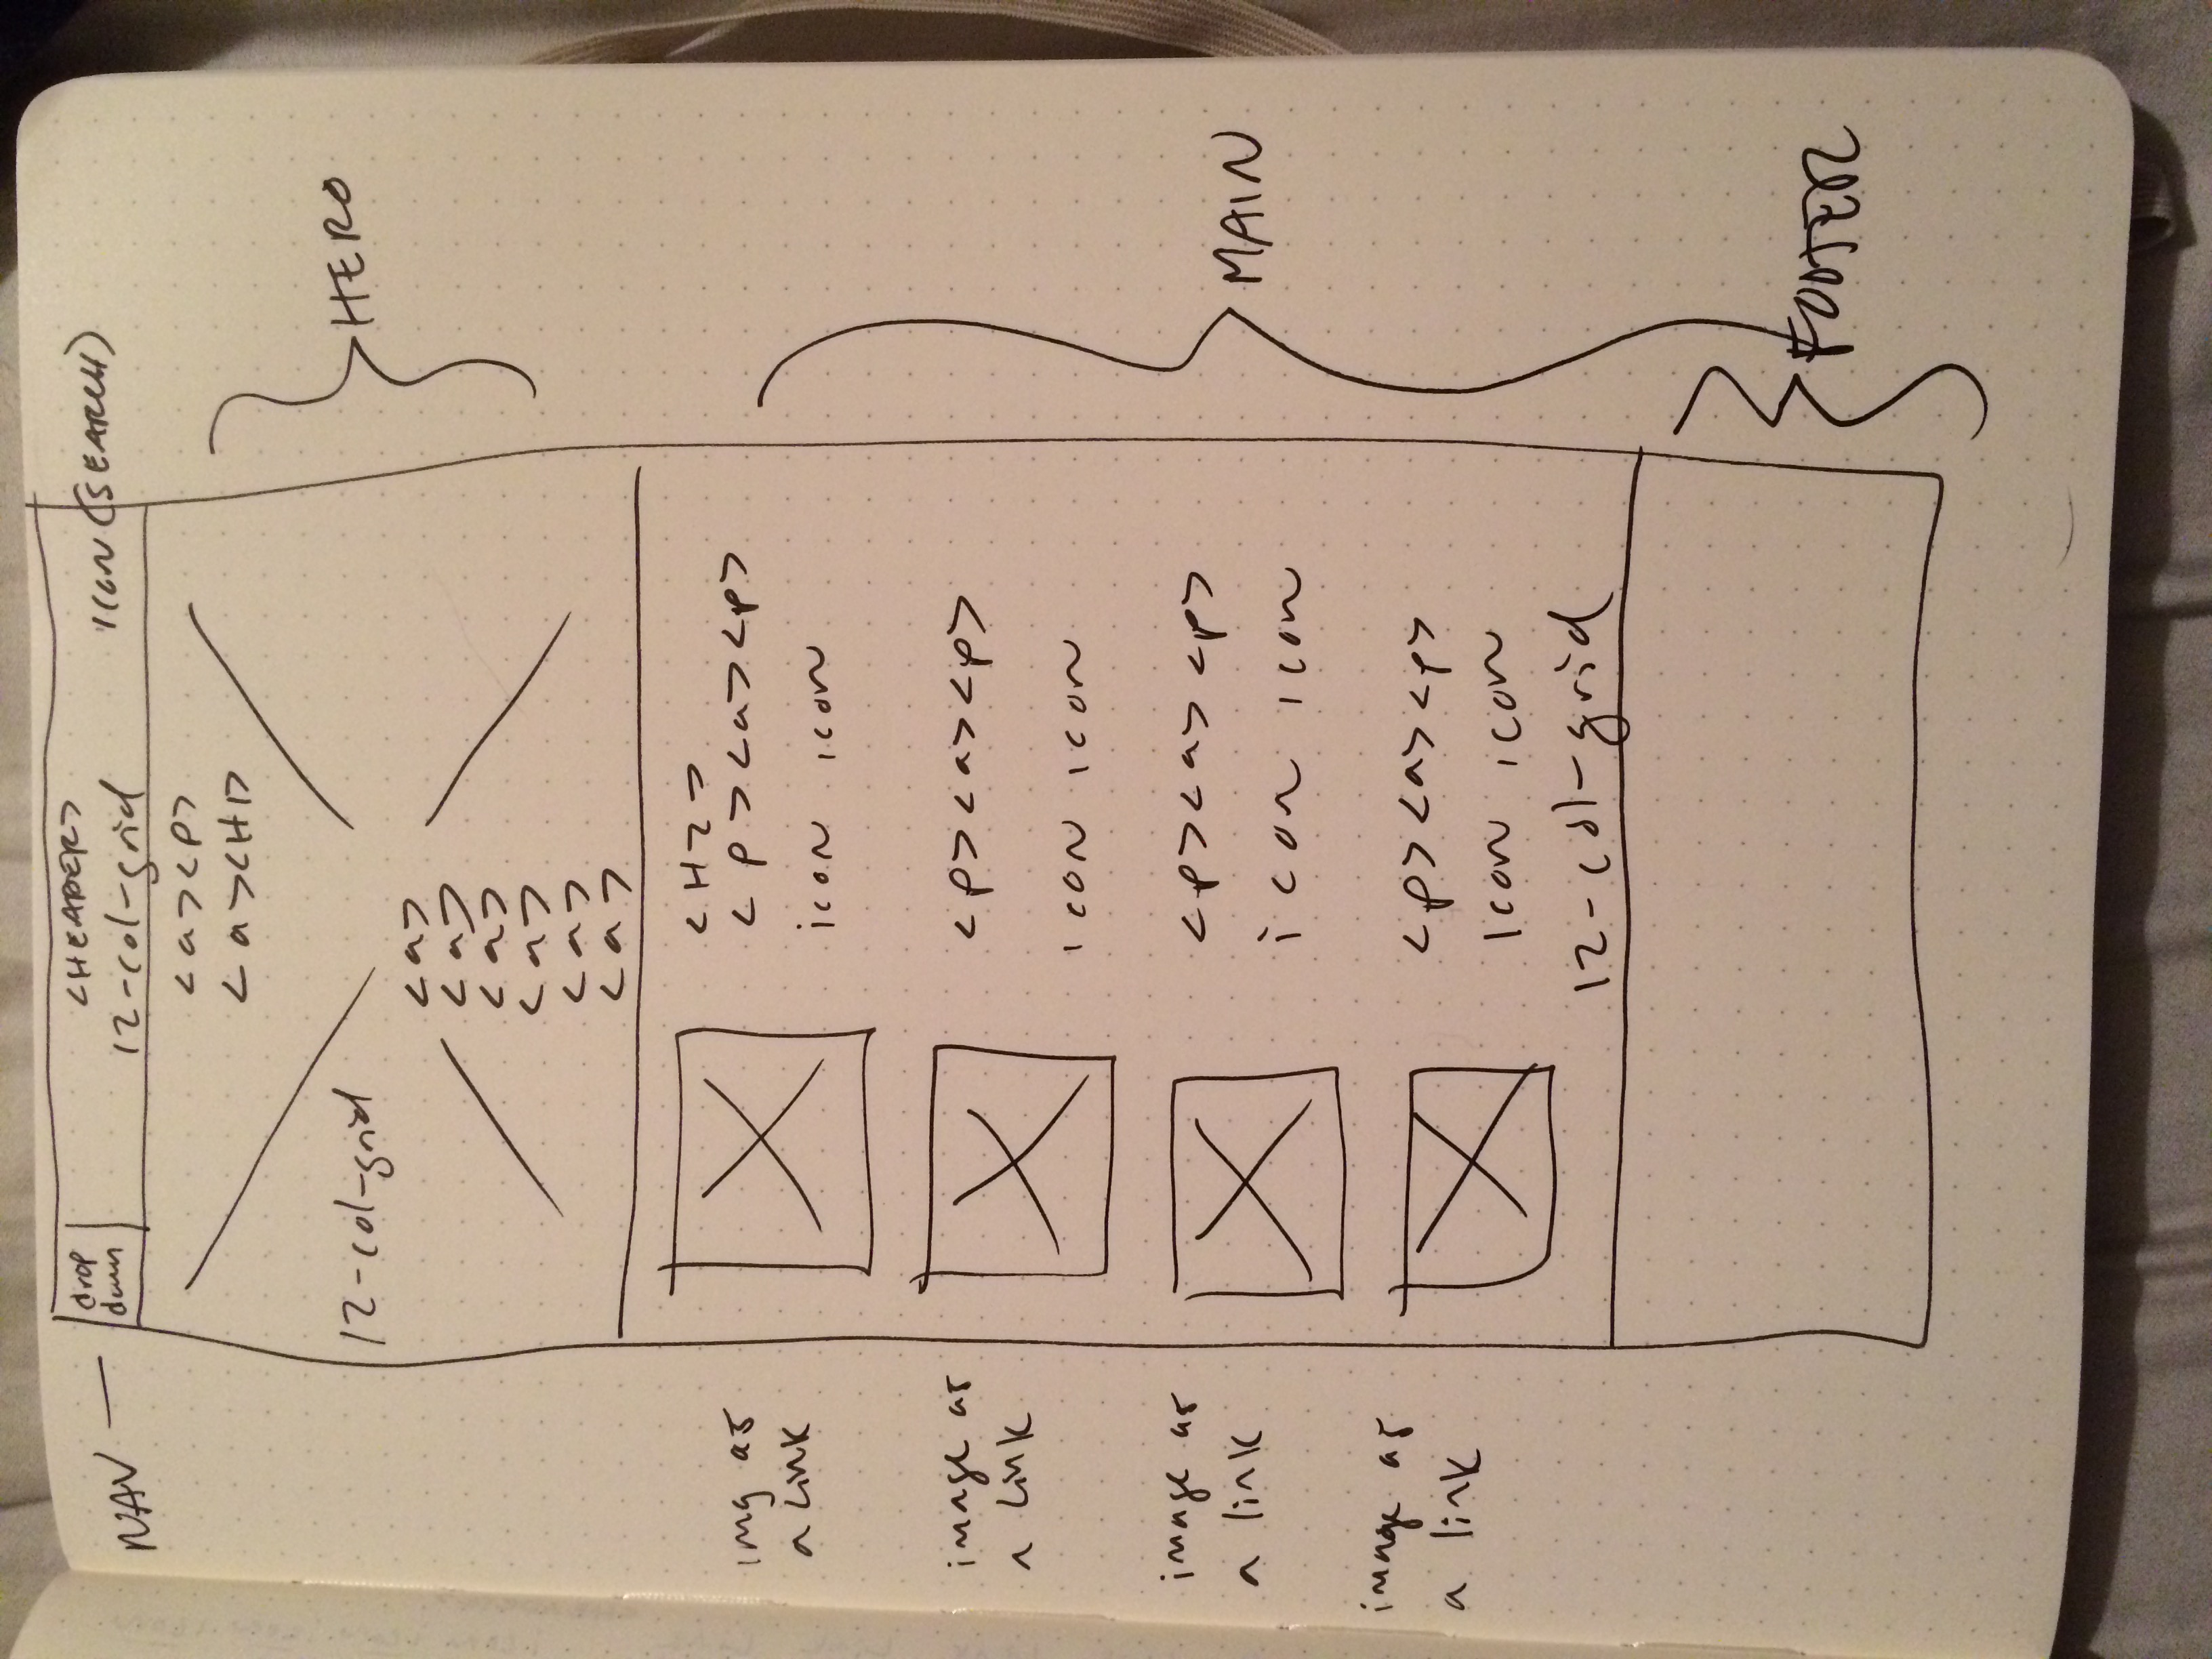 NAV
drop
down
<HEADER>
12-col-grid
ICON (SEARCH)
<a><p>
<a><H1>
12-col-grid
HERO
<a>
<a>
<a>
<a>
<a>
<a>
img as
a link
<H2>
<p><a><p>
icon icon
image as
a link
<p><a><p>
icon icon
image as
a link
<p><a><p>
icon icon
MAIN
image as
a link
<p><a><p>
icon icon
12-col-grid
FOOTER